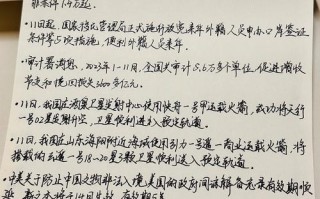 非条件14万起。
• 11日起,国家移民管理局正式施行放宽来华外籍人员申办口岸签证
条件等5次措施,便利外籍人员来华。
• 审计署消息,2023年1-11月,全国共审计5.6万多个单位,促进增收
节支和挽回损失3600多亿元。
• 11日,我国在酒泉卫星发射中心使用快舟一号甲运载火箭,成功将天行
一号02星发射升空,卫星顺利进入预定轨道。
• 11日,我国在山东海阳附近海域使用引力一号遥一商业运载火箭,将
搭载的云遥一号18-20星3颗卫星顺利送入预定轨道。
• 中美关于防止中国文物非法入境美国的政府间谅解备忘录有效期